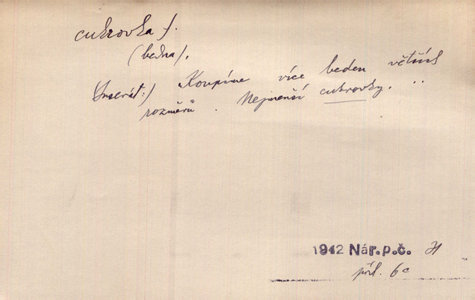 cukrovka f.
(bedna).
(Inserát:) Koupíme více beden větších
rozměrů. Nejmenší cukrovky. ..
1942 Nár.p.č. 71
příl. 6c